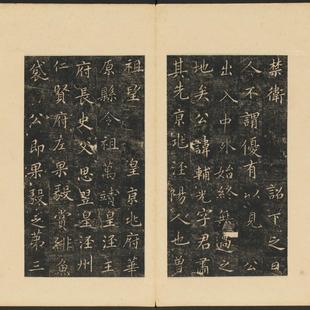 禁衛 詔下之日
令不謂優有以見公
出入中外始終無過之
地矣公諱輔光字君肅
其先京兆涇陽人也曾
祖望皇京兆府華
原縣令祖萬靖皇涇王
府長史父思昱皇涇州
仁賢府左果毅賞緋魚
袋公即果毅之第三